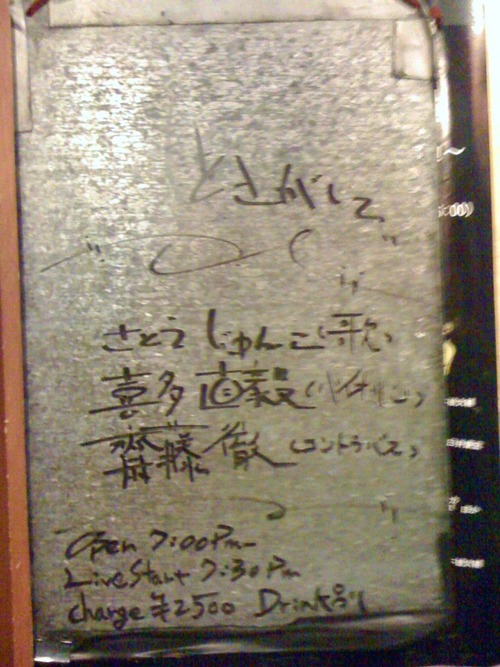 とさがして
さとうじゅんこ(歌)
喜多直毅(バイオリン)
齋藤徹(コントラバス)
Open 7:00Pm
Live Start 7:30Pm
charge ¥2500 Drink別